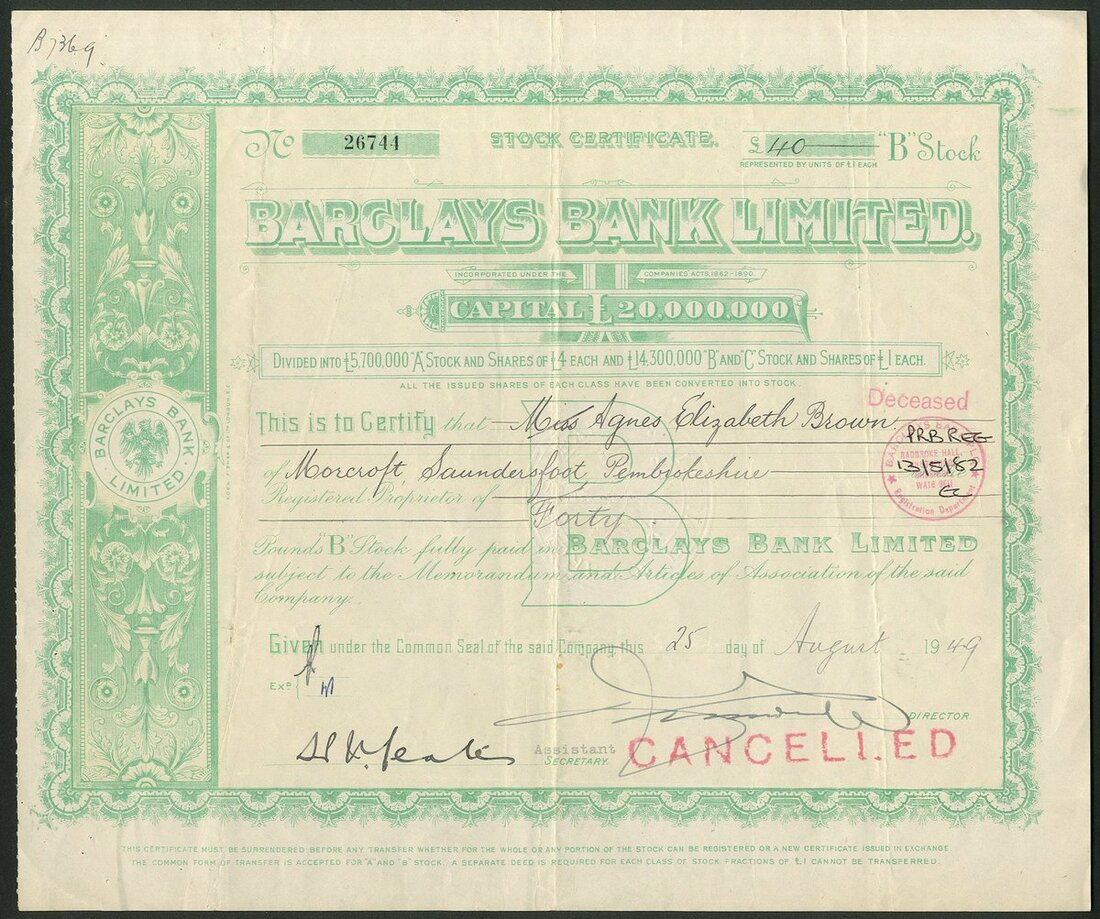 B 7369
No 26744
STOCK CERTIFICATE.
£ 40 "B" Stock
REPRESENTED BY UNITS OF £1 EACH
BARCLAYS BANK LIMITED.
INCORPORATED UNDER THE COMPANIES' ACTS, 1862-1890.
CAPITAL £20,000,000
DIVIDED INTO £5,700,000 "A" STOCK AND SHARES OF £4 EACH AND £14,300,000 "B" AND "C" STOCK AND SHARES OF £1 EACH.
ALL THE ISSUED SHARES OF EACH CLASS HAVE BEEN CONVERTED INTO STOCK.
Deceased
This is to Certify that Miss Agnes Elizabeth Brown
Morcroft Saundersfoot Pembrokeshire
Registered Proprietor of Forty
Pounds "B" Stock fully paid in BARCLAYS BANK LIMITED
subject to the Memorandum and Articles of Association of the said
Company.
BARCLAYS BANK
RADBROKE HALL,
PRB REG
13/5/82
WA16 9EU
Registration Department
BARCLAYS BANK
LIMITED
B
Given under the Common Seal of the said Company this 25 day of August 1949
Exd
DIRECTOR
Assistant
SECRETARY.
CANCELLED
THIS CERTIFICATE MUST BE SURRENDERED BEFORE ANY TRANSFER WHETHER FOR THE WHOLE OR ANY PORTION OF THE STOCK CAN BE REGISTERED OR A NEW CERTIFICATE ISSUED IN EXCHANGE
THE COMMON FORM OF TRANSFER IS ACCEPTED FOR "A" AND "B" STOCK. A SEPARATE DEED IS REQUIRED FOR EACH CLASS OF STOCK. FRACTIONS OF £1 CANNOT BE TRANSFERRED.